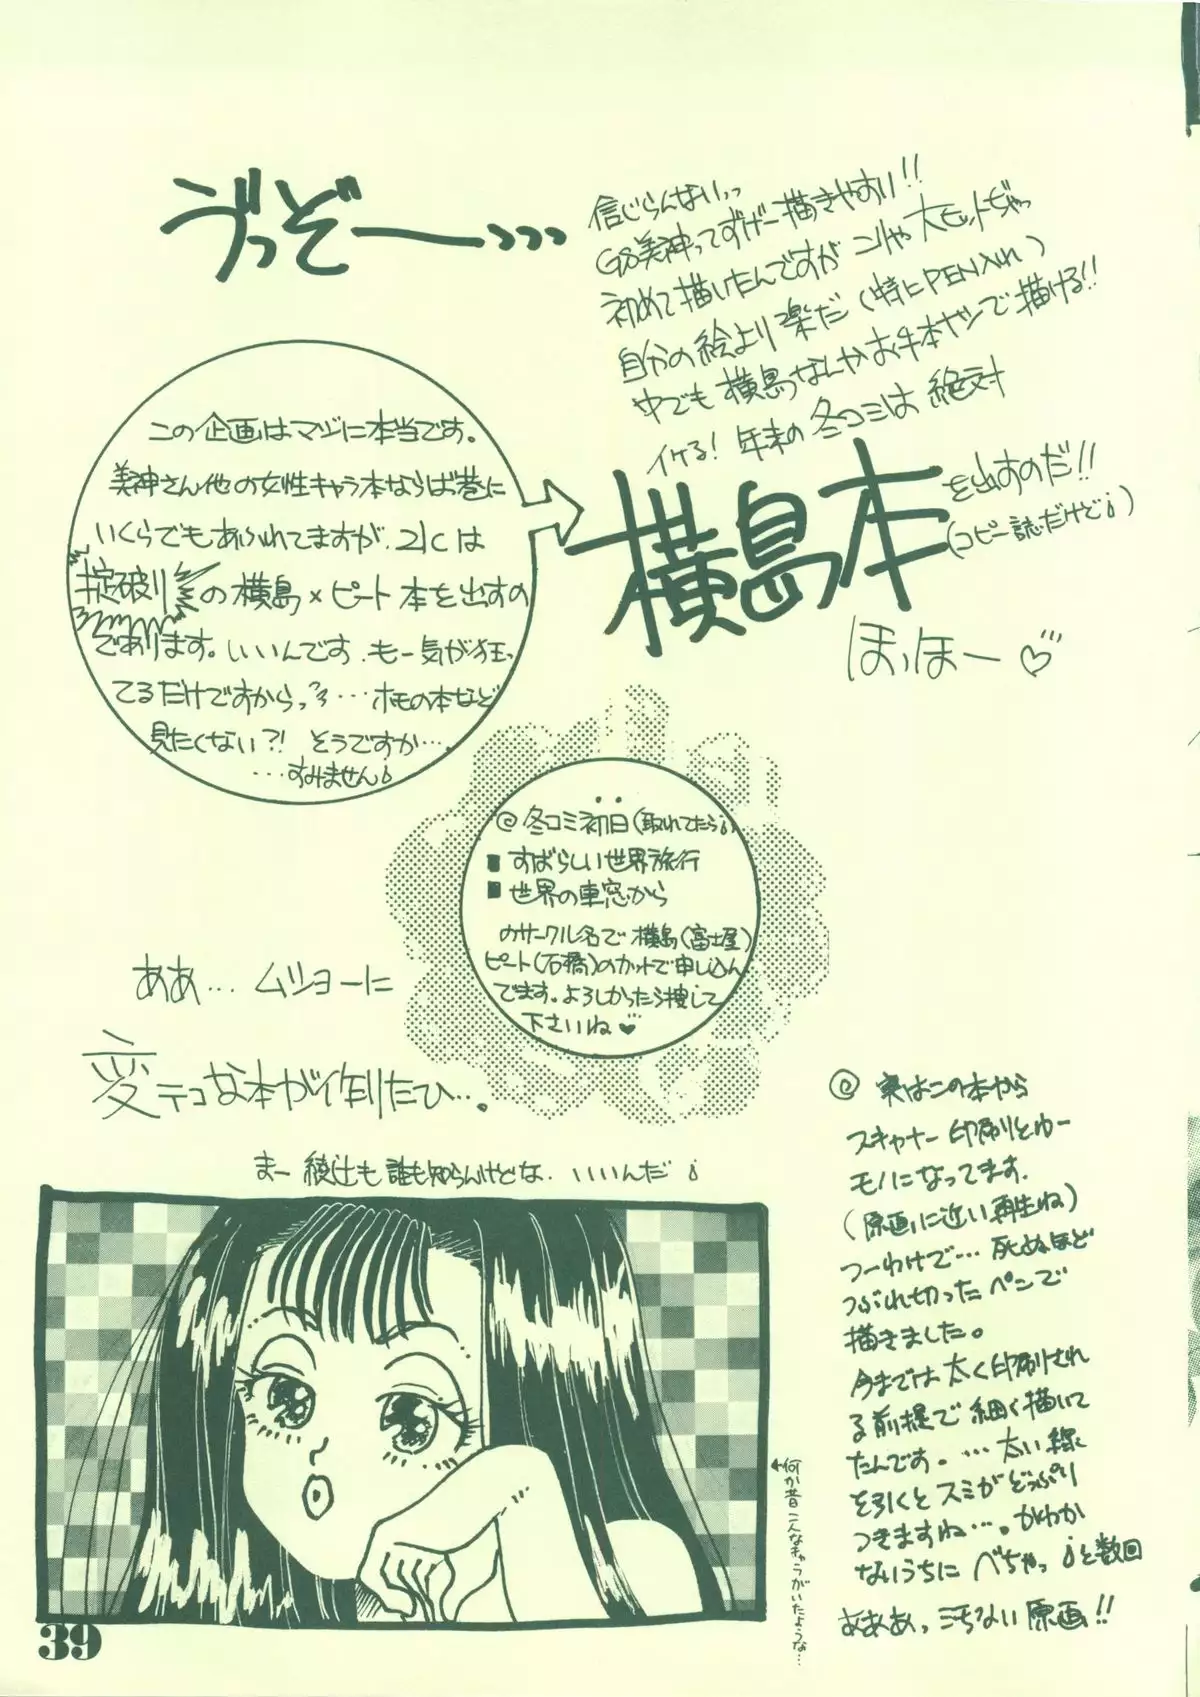 うっぞー、、、、
信じらんないっっ
GS美神ってすげー描きやすい!!
初めて描いたんですが こりゃ 大ヒットぢゃっ
自分の絵より楽だ(特にPEN入れ)
中でも横島なんかお手本ナシで描ける!!
イケる! 年末の冬コミは絶対
横島本
を出すのだ!!
(コピー誌だけど)
ほっほー♡
この企画はマジに本当です。
美神さん他の女性キャラ本ならば巷に
いくらでもあふれてますが、
掟破りの横島×ピート本を出すの
であります。いいんです。もー気が狂っ
てるだけですからっ…ホモの本など
見たくない?! そうですか…。
…すみません
◎冬コミ初日(取れてたら)
■すばらしい世界旅行
■世界の車窓から
のサークル名で 横島(富士屋)
ピート(石橋)のカットで申し込ん
でます。よろしかったら捜して
下さいね♡
ああ… ムショーに
変テコな本が作りたひ…。
まー 綾辻も 誰も知らんけどな. いいんだ
◎ 実はこの本から
スキャナー印刷とゆー
モノになってます.
(原画に近い再生ね)
つーわけで… 死ぬほど
つぶれ切ったペンで
描きました。
今までは太く印刷され
る前提で細く描いて
たんです。…太い線
を引くとスミがどっぷり
つきますね…。かわか
ないうちに べちゃっ と数回
あああっ きちない 原画!!
何か昔こんなキャラがいたような…
39